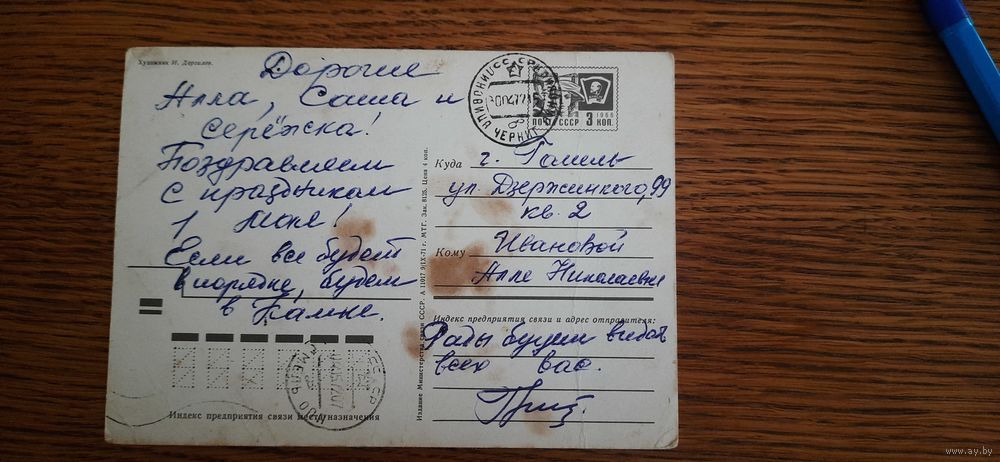 Художник И. Дергилев.
Дорогие
Алла, Саша и
Серёжка!
Поздравляем
с праздником
1 Мая!
Если все будет
в порядке, будем
в
Индекс предприятия связи места назначения
Издание Министерства связи СССР. А 11017 9/IX-71 г. МТГ. Зак. 8125. Цена 4 коп.
1966
ПОЧТА СССР 3 КОП.
Куда г. Гомель
ул. Дзержинского, 99
кв. 2
Кому Ивановой
Алле Николаевне
Индекс предприятия связи и адрес отправителя:
Рады будем видеть
всех вас.
www.ay.by